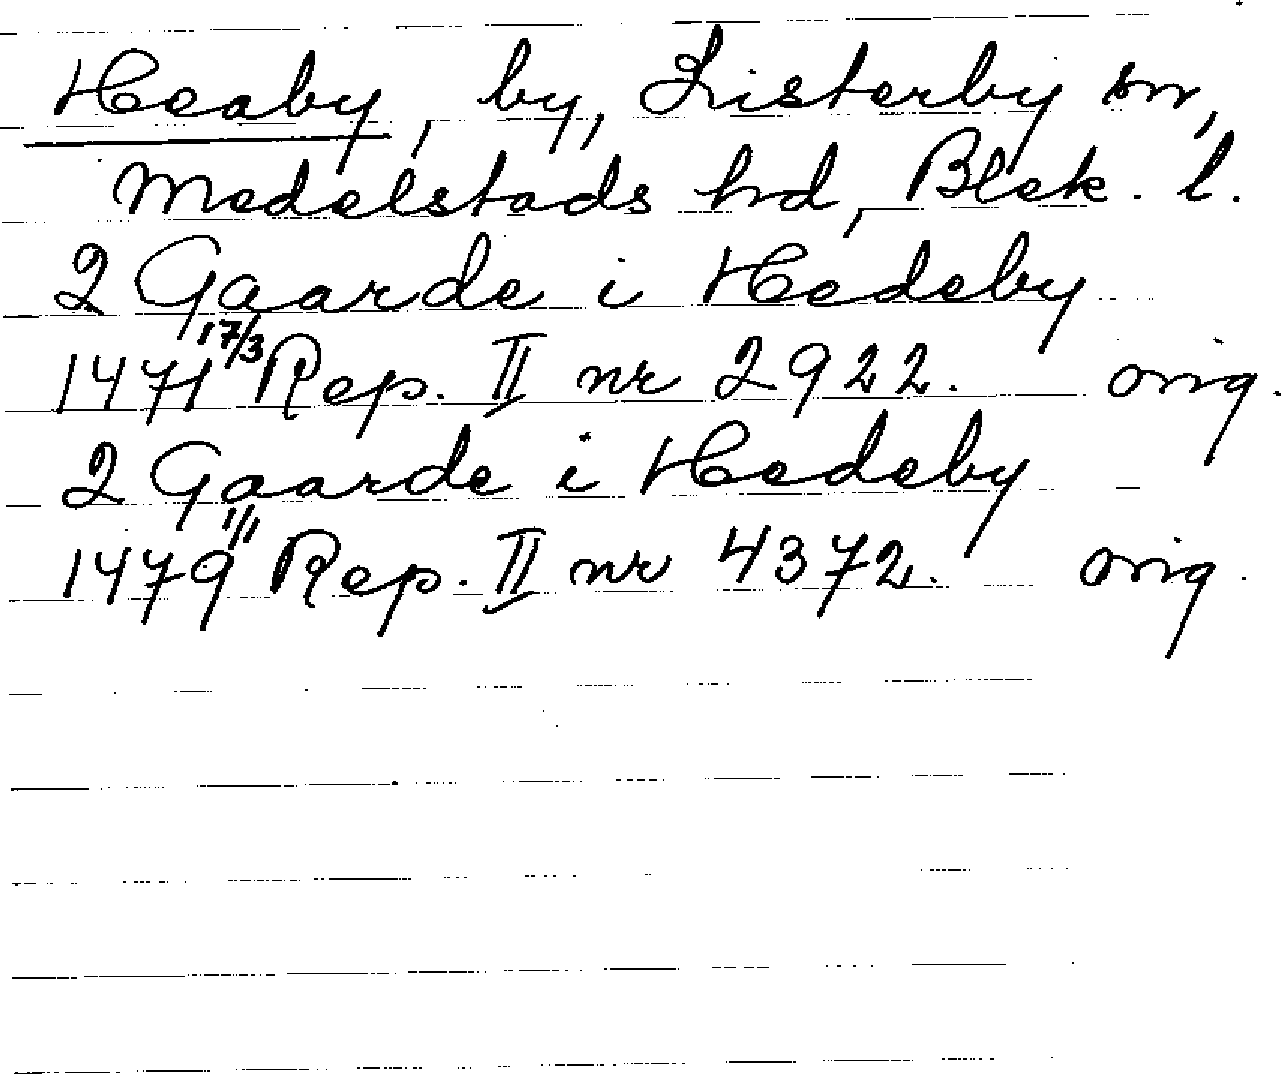 Heaby, by, Listerby sn,
Medelstads hd, Blek. l.
2 Gaarde i Hedeby
1471 17/3 Rep. II nr 2922. orig.
2 Gaarde i Hedeby
1479 1/1 Rep. II nr 4372. orig.